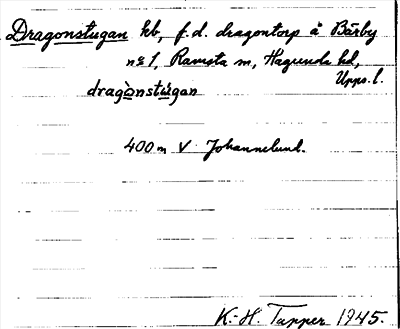 Dragonstugan hb, f.d. dragontorp å Bärby
nº 1, Ramsta sn, Hagunda hd,
Upps. l.
dragònstùgan
400 m V Johannelund.
K.-H. Tapper 1945.